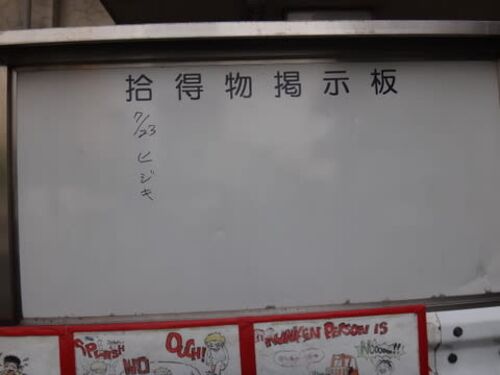 拾得物掲示板
7/23 ヒジキ
SPLASH
OUCH!
WO
DRUNKEN PERSON IS
NOooooo!!!